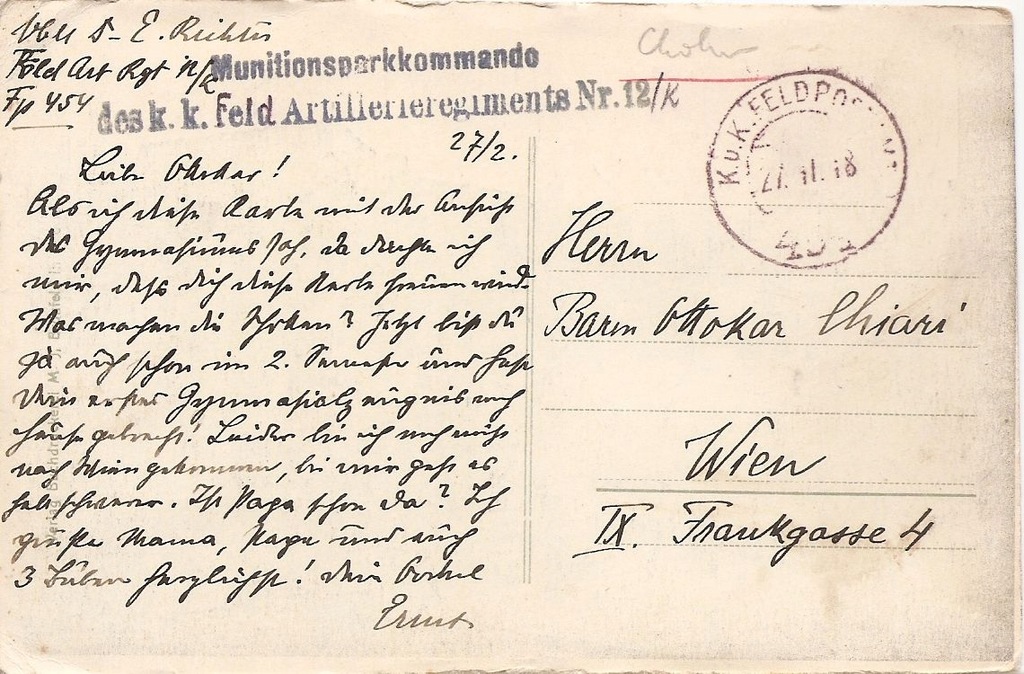 E. Richter
Feld Art Rgt 12/K
Fp 454
Munitionsparkkommando
des k. k. Feld Artillerieregiments Nr. 12/K
K.u.K. FELDPOST
27. II. 18
27/2.
Lieber Ottokar!
Als ich diese Karte mit der Ansicht
des Gymnasiums sah, da dachte ich
mir, daß dich diese Karte freuen wird.
Was machen die Studien? Jetzt bist du
ja auch schon im 2. Semester und hast
dein erstes Gymnasialzeugnis nach
Hause gebracht! Leider bin ich noch nicht
nach Wien gekommen, bei mir geht es
halt schwerer. Ist Papa schon da? Ich
grüße Mama, Papa und euch
3 Buben herzlichst! Dein Onkel
Ernst
Herrn
Baron Ottokar Chiari
Wien
IX. Frankgasse 4